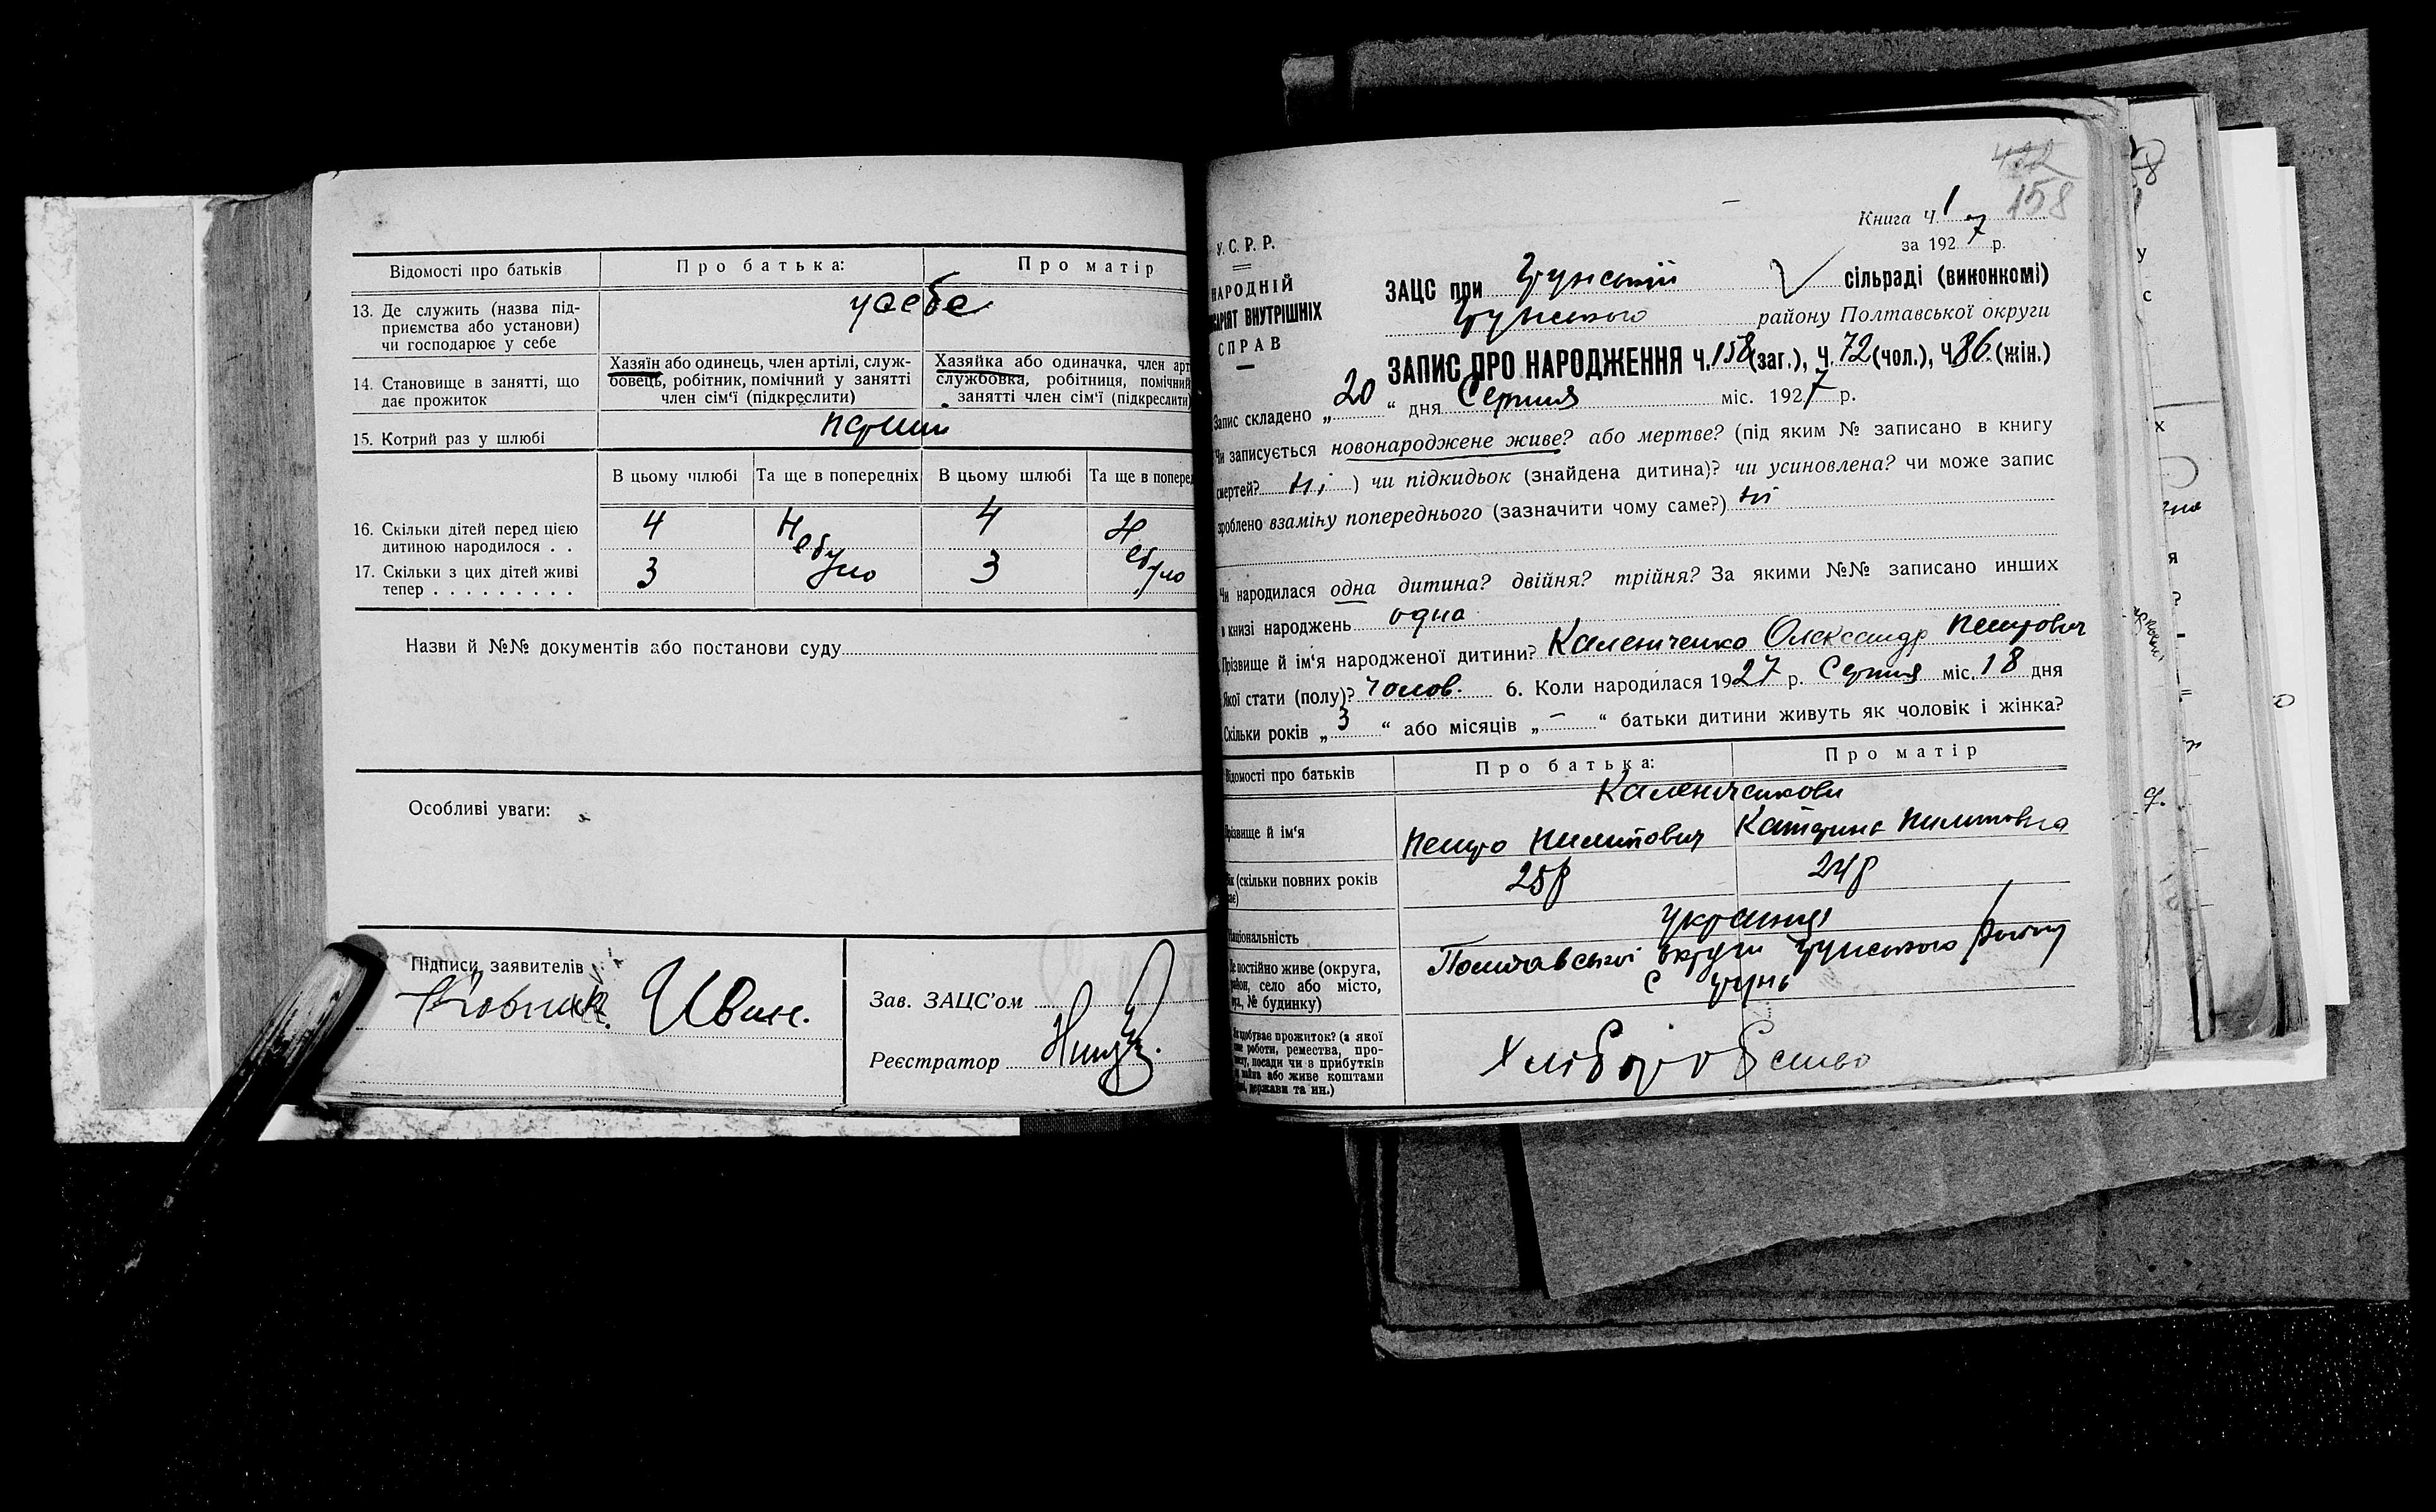 Відомості про батьків
Про батька:
Про матір
13. Де служить (назва під-
приємства або установи)
чи господарює у себе
усебе
14. Становище в занятті, що
дає прожиток
Хазяїн або одинець, член артілі, служ-
бовець, робітник, помічний у занятті
член сім'ї (підкреслити)
Хазяйка або одиначка, член арт
службовка, робітниця, помічний
занятті член сім'ї (підкреслити)
15. Котрий раз у шлюбі
перший
В цьому шлюбі
Та ще в попередніх
В цьому шлюбі
Та ще в поперед
16. Скільки дітей перед цією
дитиною народилося . .
4
Не було
4
Не було
17. Скільки з цих дітей живі
тепер . . . . . . . . .
3
3
Назви й №№ документів або постанови суду
Особливі уваги:
Підписи заявителів
Иван.
Зав. ЗАЦС'ом
Реєстратор
422
158
Книга Ч. 1
за 1927 р.
У.С.Р.Р.
НАРОДНІЙ
ВНУТРІШНІХ
СПРАВ
ЗАЦС при Грунській сільраді (виконкомі)
Грунського району Полтавської округи
ЗАПИС ПРО НАРОДЖЕННЯ Ч. 158 (заг.), Ч. 72 (чол.), Ч 86 (жін.)
Запис складено „ 20 “ дня Серпня міс. 1927 р.
Чи записується новонароджене живе? або мертве? (під яким № записано в книгу
смертей? ні ) чи підкидьок (знайдена дитина)? чи усиновлена? чи може запис
зроблено взаміну попереднього (зазначити чому саме?) ні
Чи народилася одна дитина? двійня? трійня? За якими №№ записано инших
в книзі народжень одна
Прізвище й ім'я народженої дитини? Каленіченко Олександр Петрович
Якої стати (полу)? чолов. 6. Коли народилася 1927 р. Серпня міс. 18 дня
Скільки років „ 3 “ або місяців „ – “ батьки дитини живуть як чоловік і жінка?
Відомості про батьків
Про батька:
Про матір
Каленіченкови
Прізвище й ім'я
Петро Пилипович
Катерина Пилиповна
Вік (скільки повних років
має)
25 р
24 р
Національність
українці
Де постійно живе (округа,
район, село або місто,
вул., № будинку)
Полтавської округи Грунського району
с Грунь
Як здобуває прожиток? (з якої
роботи, ремества, про-
мислу, посади чи з прибутків
майна або живе коштами
держави та ин.)
Хліборобство